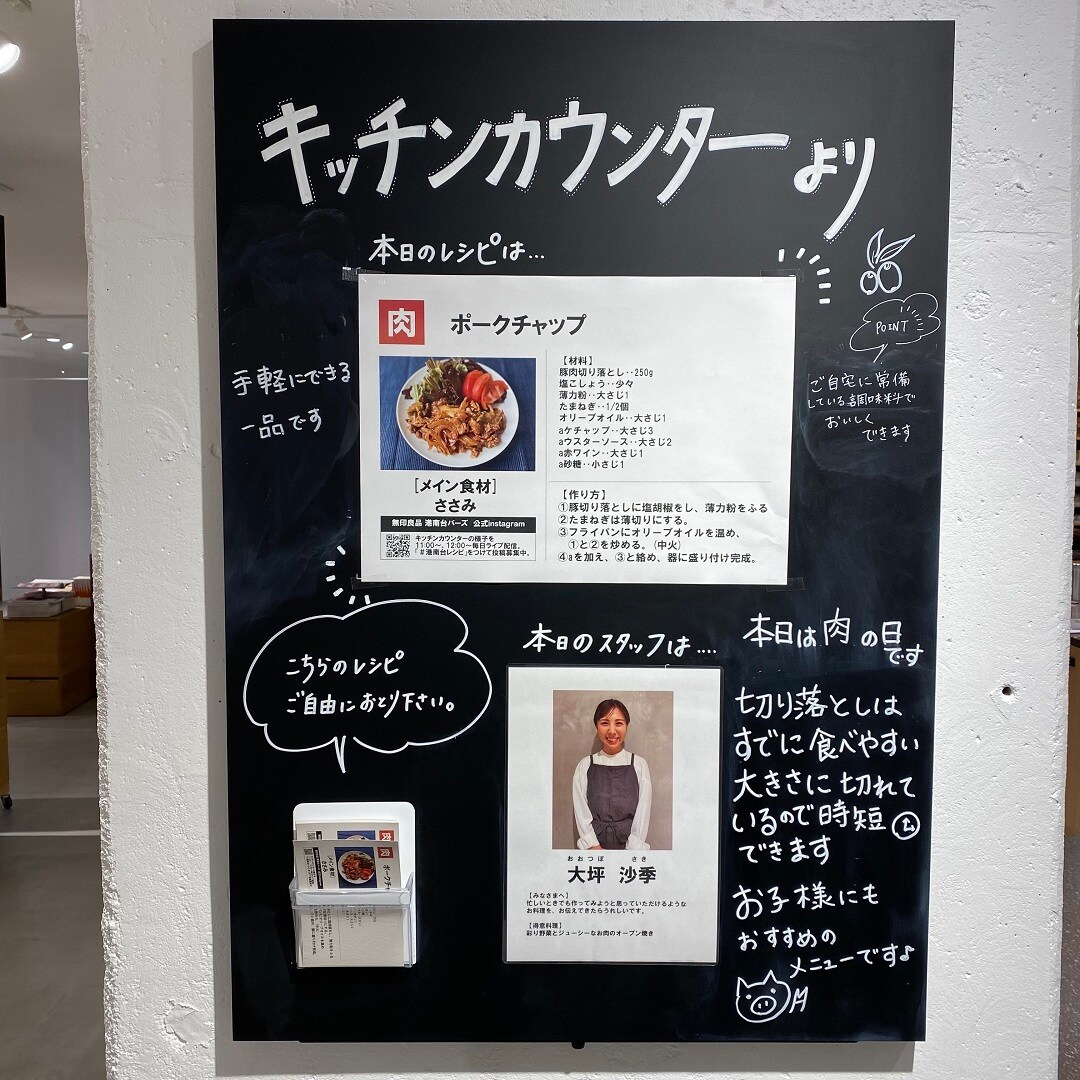 キッチンカウンターより
本日のレシピは...
手軽にできる
一品です
肉
ポークチャップ
[メイン食材]
ささみ
無印良品 港南台バーズ 公式instagram
キッチンカウンターの様子を
11:00〜、12:00〜毎日ライブ配信。
「＃港南台レシピ」をつけて投稿募集中。
【材料】
豚肉切り落とし‥250g
塩こしょう‥少々
薄力粉‥大さじ1
たまねぎ‥1/2個
オリーブオイル‥大さじ1
aケチャップ‥大さじ3
aウスターソース‥大さじ2
a赤ワイン‥大さじ1
a砂糖‥小さじ1
【作り方】
①豚切り落としに塩胡椒をし、薄力粉をふる
②たまねぎは薄切りにする。
③フライパンにオリーブオイルを温め、
①と②を炒める。(中火)
④aを加え、③と絡め、器に盛り付け完成。
POINT
ご自宅に常備
している調味料で
おいしく
できます
こちらのレシピ
ご自由におとり下さい。
肉
ポークチャ
[メイン食材]
ささみ
本日のスタッフは....
おおつぼ さき
大坪 沙季
【みなさまへ】
忙しいときでも作ってみようと思っていただけるような
お料理を、お伝えできたらうれしいです。
【得意料理】
彩り野菜とジューシーなお肉のオーブン焼き
本日は肉の日
です
切り落としは
すでに食べやすい
大きさに切れて
いるので時短
できます
お子様にも
おすすめの
メニューです♪